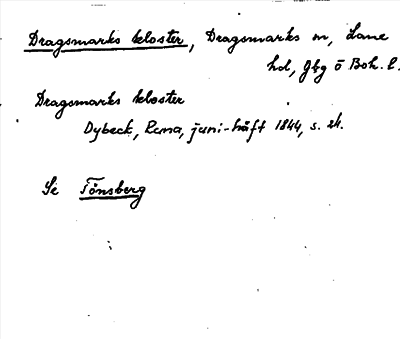 Dragsmarks kloster, Dragsmarks sn, Lane
hd, Gbg o Boh. l.
Dragsmarks kloster
Dybeck, Runa, juni-häft 1844, s. 24.
Se Tönsberg